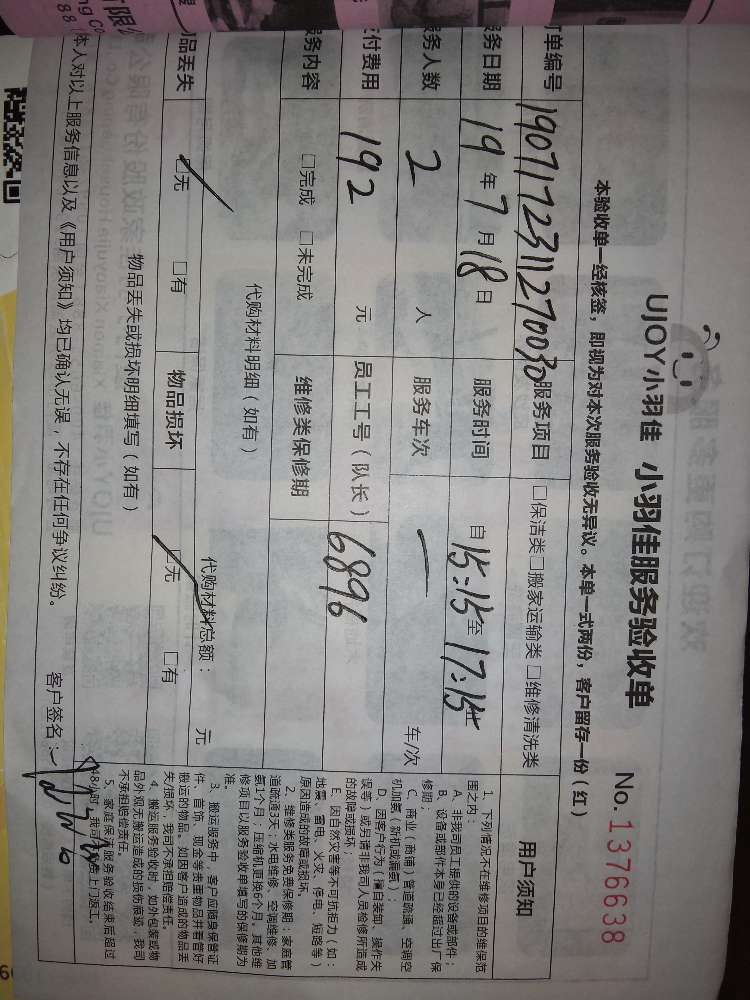 UJOY小羽佳 小羽佳服务验收单 No. 1376638
本验收单一经核签，即视为对本次服务验收无异议。本单一式两份，客户留存一份（红）
订单编号 1907172311270030 服务项目 □保洁类□搬家运输类□维修清洗类 用户须知
务日期 19年7月18日 服务时间 自15:15至17:15
务人数 2 人 服务车次 — 车/次
付费用 192 元 员工工号（队长） 6896
务内容 □完成 □未完成 维修类保修期
代购材料明细（如有） 代购材料总额： 元
品丢失 □无 □有 物品损坏 □无 □有
物品丢失或损坏明细填写（如有）
本人对以上服务信息以及《用户须知》均已确认无误，不存在任何争议纠纷。 客户签名：
1、下列情况不在维修项目的维保范
围之内：
A、非我司员工提供的设备或部件；
B、设备或部件本身已经超过出厂保
修期；
C、商业（商铺）管道疏通、空调空
机加氨（新机或漏氨）；
D、因客户行为（擅自装卸、操作失
误等）或另请非我司人员检修所造成
的故障或损坏；
E、因自然灾害等不可抗拒力（如：
地震、雷电、火灾、停电、短路等）
原因造成的故障或损坏。
2、维修类服务免费保修期：家庭管
道疏通3天；水电维修、空调维修、加
氨1个月；压缩机更换6个月。其他维
修项目以服务验收单填写的保修期为
准。
3、搬运服务中，客户应随身保管证
件、首饰、现金等贵重物品并看管好
搬运的物品。如因客户造成的物品丢
失/损坏，我司不承担赔偿责任。
4、搬运服务验收时，如外包装或物
品外观无搬运造成的损伤痕迹，我司
不承担赔偿责任。
5、家庭保洁服务验收结束后超过
48小时，我司不免费上门返工。